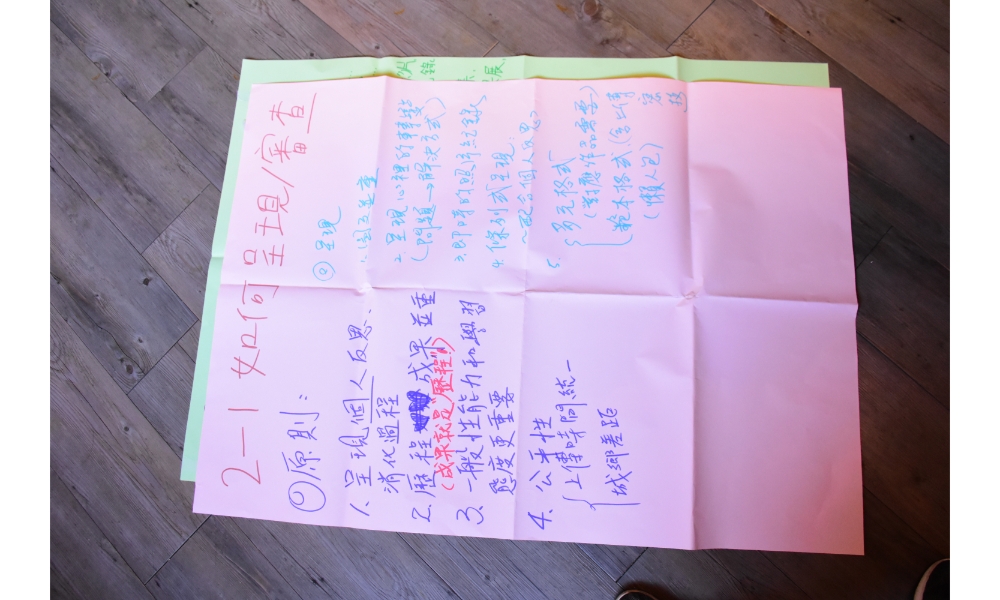 2-1 如何呈現/審查
㊀原則：
1. 呈現個人反思、
消化過程
2. 歷程 成果並重
(成果就是"歷程"!!)
3. 一般性能力和學習
態度更重要
4. 公平性
上傳時間統一
城鄉差距
◎呈現
2. 呈現心裡的轉變
(問題→解決方式)
3. 即時的照片紀錄
4. 條列式呈現
配合個人反思
5. 多元格式
(對應作品需要)
範本格式
(懶人包)
錄
展